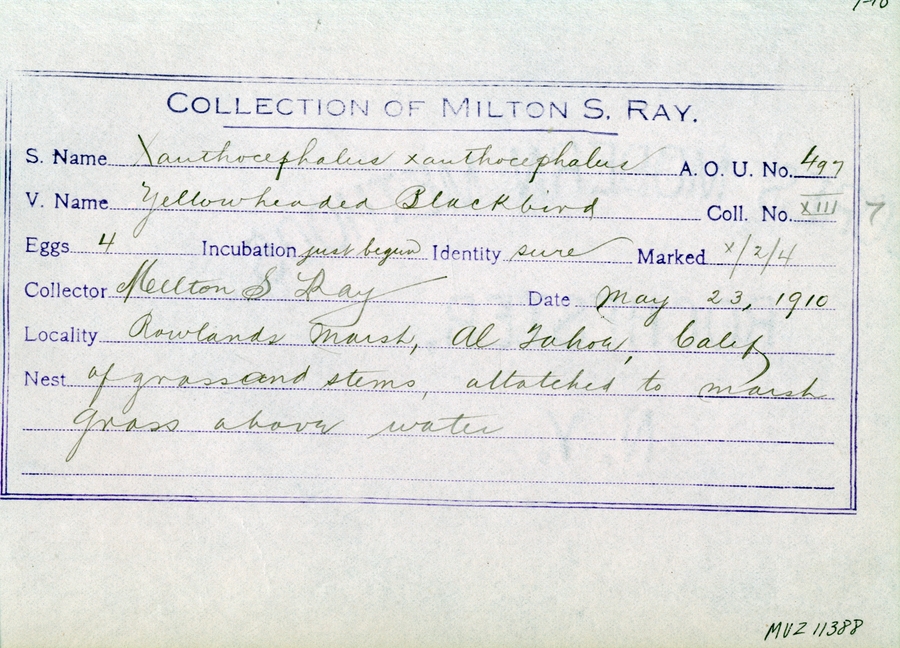 COLLECTION OF MILTON S. RAY.
S. Name Xanthocephalus xanthocephalus A. O. U. No. 497
V. Name Yellowheaded Blackbird Coll. No. XIII 7
Eggs 4 Incubation just begun Identity sure Marked x/2/4
Collector Milton S Ray Date May 23, 1910
Locality Rowlands Marsh, Al Tahoe, Calif
Nest of grass and stems, attatched to marsh
grass above water
MVZ 11388